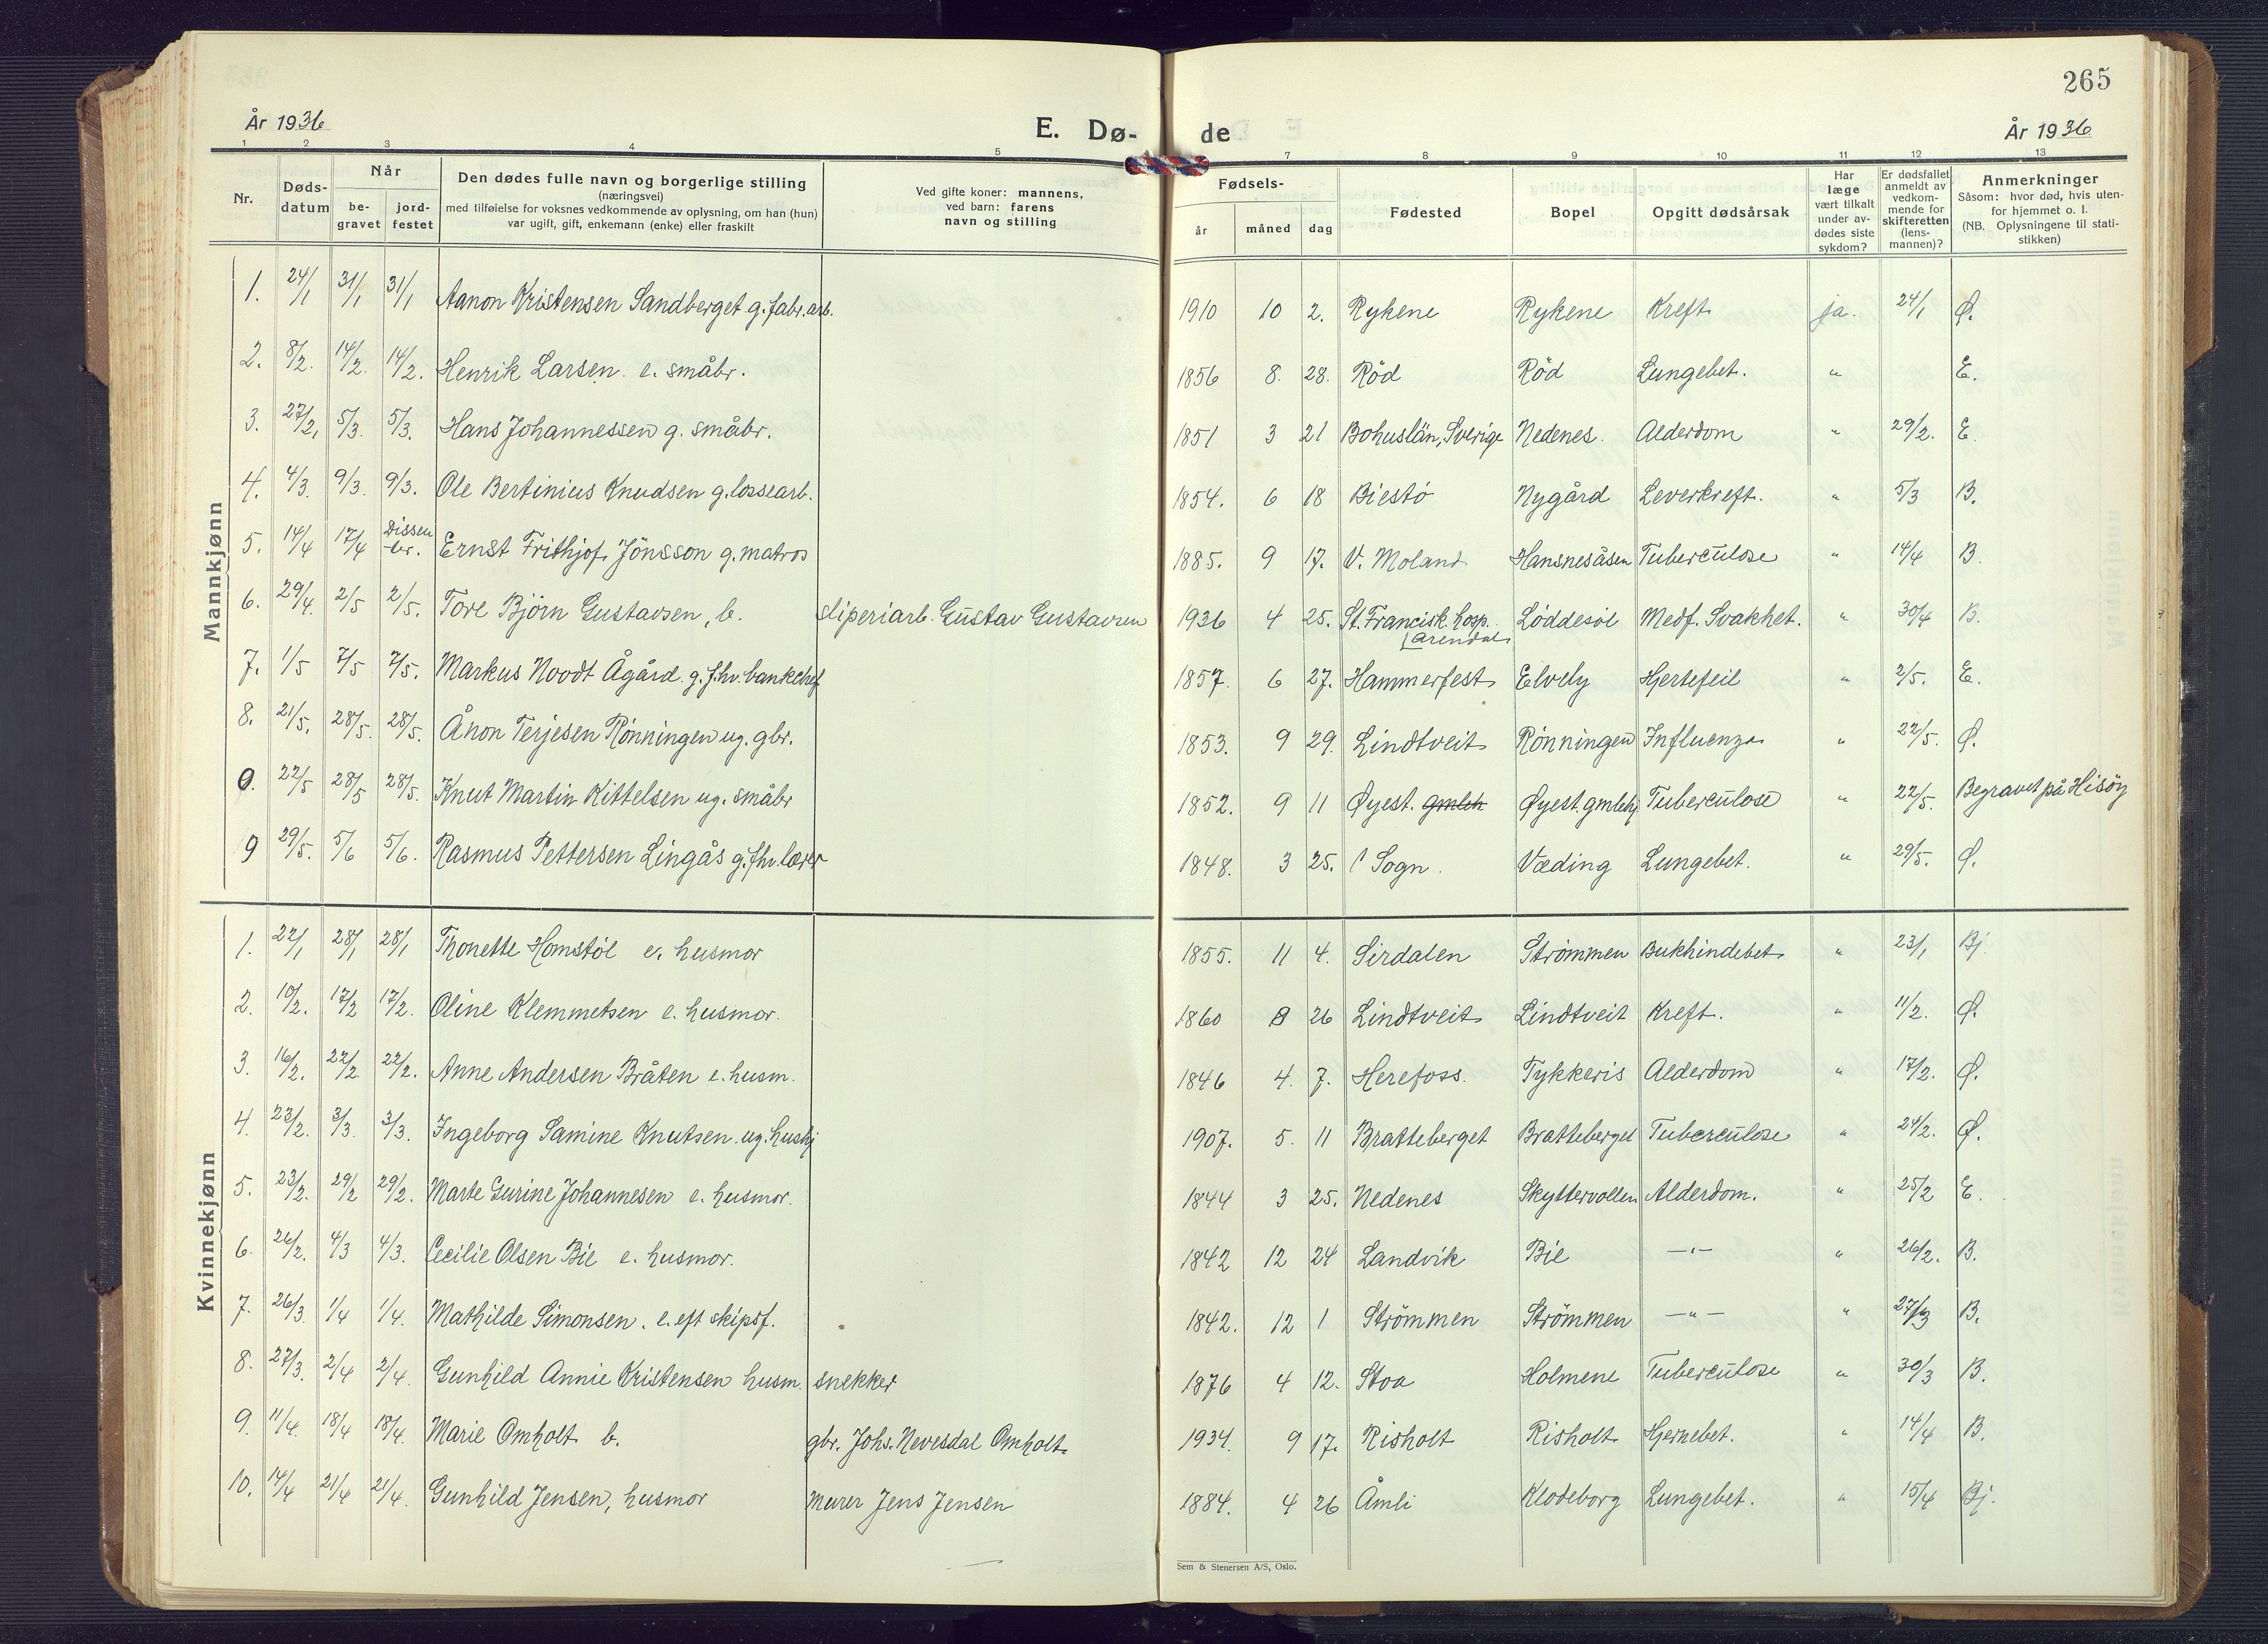 265
År 1936
E. Dø-
de
År 1936
1 2 3 4 5 7 8 9 10 11 12 13
Nr.
Døds-
datum
Når
be-
gravet
jord-
festet
Den dødes fulle navn og borgerlige stilling
(næringsvei)
med tilføielse for voksnes vedkommende av oplysning, om han (hun)
var ugift, gift, enkemann (enke) eller fraskilt
Ved gifte koner: mannens,
ved barn: farens
navn og stilling
Fødsels-
år
måned
dag
Fødested
Bopel
Opgitt dødsårsak
Har
læge
vært tilkalt
under av-
dødes siste
sykdom?
Er dødsfallet
anmeldt av
vedkom-
mende for
skifteretten
(lens-
mannen)?
Anmerkninger
Såsom: hvor død, hvis uten-
for hjemmet o. l.
(NB. Oplysningene til stati-
stikken)
Mannkjønn
1. 24/1 31/1 31/1 Aanon Kristensen Sandberget g. fabr. arb. 1910 10 2. Rykene Rykene Kreft ja. 24/1 Ø.
2. 8/2. 14/2. 14/2. Henrik Larsen e. småbr. 1856 8. 28. Röd Röd Lungebet. " E.
3. 27/2. 5/3. 5/3. Hans Johannessen g. småbr. 1851 3 21 Bohuslän, Sverige Nedenes. Alderdom " 29/2. E.
4. 4/3. 9/3. 9/3. Ole Bertinius Knudsen g. lossearb. 1854. 6 18 Biestö Nygård Leverkreft. " 5/3 B.
5. 14/4 17/4 Dissen-
ter. Ernst Frithjof Jönsson g. matros 1885. 9 17. V. Moland Hansnesåsen Tuberculose " 14/4 B.
6. 29/4. 2/5 2/5. Tore Björn Gustavsen, b. sliperiarb. Gustav Gustavsen 1936 4 25. St. Francisk. hosp. Løddesøl Medf. Svakhet. " 30/4 B.
Arendal
7. 1/5 7/5 7/5. Markus Noodt Ågård. g. fhv. bankchef 1857. 6 27. Hammerfest Elvely Hjertefeil " 2/5. E.
8. 21/5. 28/5. 28/5. Ånon Terjesen Rönningen ug. gbr. 1853. 9 29. Lindtveit Rönningen Influenza " 22/5. Ø.
0. 22/5 28/5 28/5. Knut Martin Kittelsen ug. småbr 1852. 9 11 Øyest. gmleh Øyest. gmlehj. Tuberculose " 22/5. Begravet på Hisöy
9 29/5. 5/6 5/6. Rasmus Pettersen Lingås g. fhv. lærer 1848. 3 25. i Sogn. Væding Lungebet. " 29/5. Ø.
Kvinnekjønn
1. 22/1 28/1 28/1 Thonette Homstöl e. husmor 1855. 11 4. Sirdalen Strömmen Bukhindebet. " 23/1 Bj
2. 10/2. 17/2 17/2. Oline Klemmetsen e. husmor. 1860 8 26 Lindtveit Lindtveit Kreft. " 11/2. Ø.
3. 16/2. 22/2 22/2. Anne Andersen Bråten e. husm. 1846 4. 7. Herefoss. Tykkeris Alderdom " 17/2. Ø.
4. 23/2. 3/3. 3/3. Ingeborg Samine Knutsen ug. hushj 1907. 5. 11 Bratteberget Bratteberget Tuberculose " 24/2. Ø.
5. 23/2. 29/2 29/2. Marte Gurine Johannesen e. husmor. 1844 3 25. Nedenes Skyttervollen Alderdom. " 25/2 E.
6. 26/2. 4/3 4/3. Cecilie Olsen Bie e. husmor. 1842 12 24 Landvik Bie —"— " 26/2. B.
7. 26/3. 1/4 1/4. Mathilde Simonsen. e. eft skipsf. 1842. 12 1 Strömmen Strömmen —"— " 27/3 B.
8. 27/3. 2/4 2/4. Gunhild Annie Kristensen husm. snekker 1876 4 12. Stoa Holmene Tuberculose " 30/3 B.
9. 11/4. 18/4 18/4. Marie Omholt b. gbr. Johs. Nevesdal Omholt 1934. 9 17. Risholt Risholt Hjernebet. " 14/4 B.
10. 14/4 21/4 21/4. Gunhild Jensen, husmor murer Jens Jensen 1884. 4 26 Åmli Klodeborg Lungebet. " 15/4 Bj.
Sem & Stenersen A/S, Oslo.